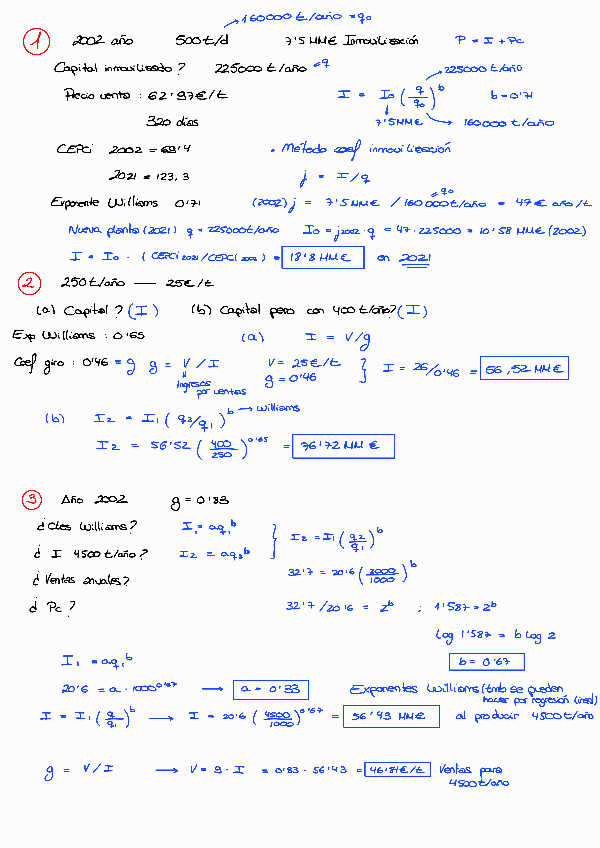 → 160000 t/año = q₀
1 2002 año 500 t/d 7'5 MM€ Inmovilización P = I + Pc
Capital inmovilizado? 225000 t/año = q → 225000 t/año
Precio venta : 62'97€/t I = I₀ (q/q₀)^b b = 0'71
320 días 7'5 MM€ 160000 t/año
CEPCI 2002 = 69'4 • Método coef inmovilización
2021 = 123,3 j = I/q
= q₀
Exponente Williams 0'71 (2002) j = 7'5 MM€ / 160000 t/año = 47 € año/t
Nueva planta (2021) q = 225000 t/año I₀ = j₂₀₀₂ · q = 47 · 225000 = 10'58 MM€ (2002)
I = I₀ · (CEPCI 2021 / CEPCI 2002) = 18'8 MM€ en 2021
2 250 t/año — 25€/t
(a) Capital? (I) (b) Capital pero con 400 t/año? (I)
Exp Williams : 0'65 (a) I = V/g
Coef giro : 0'46 = g g = V / I V = 25€/t g = 0'46 } I = 26/0'46 = 56,52 MM€
ingresos por ventas
(b) I₂ = I₁ (q₂/q₁)^b → Williams
I₂ = 56'52 (400/250)^0'65 = 76'72 MM€
3 Año 2002 g = 0'83
¿Ctes Williams? I₁ = aq₁^b } I₂ = I₁ (q₂/q₁)^b
¿ I 4500 t/año? I₂ = aq₂^b
¿Ventas anuales? 32'7 = 20'6 (2000/1000)^b
¿ Pc? 32'7/20'6 = 2^b ; 1'587 = 2^b
log 1'587 = b log 2
I₁ = aq₁^b b = 0'67
20'6 = a · 1000^0'67 → a = 0'33 Exponentes Williams (tmb se pueden
hacer por regresión lineal)
I = I₁ (q/q₁)^b → I = 20'6 (4500/1000)^0'67 = 56'43 MM€ al producir 4500 t/año
g = V/I → V = g · I = 0'83 · 56'43 = 46'84€/t Ventas para
4500 t/año